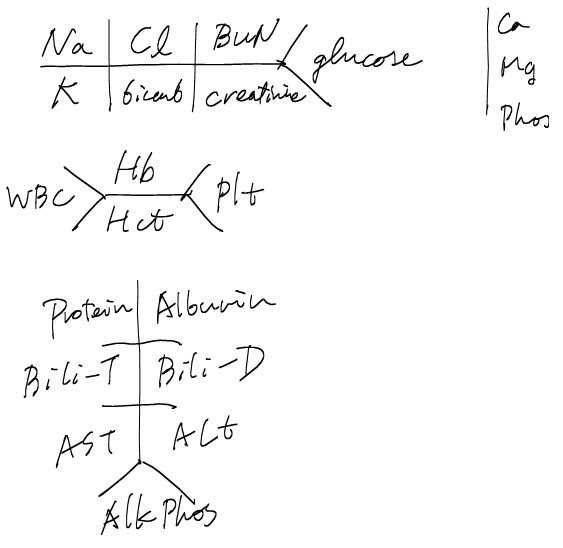 Na Cl BUN glucose Ca
K bicarb creatinine Mg
Phos
Hb
WBC Plt
Hct
Protein Albumin
Bili-T Bili-D
AST ALt
Alk Phos